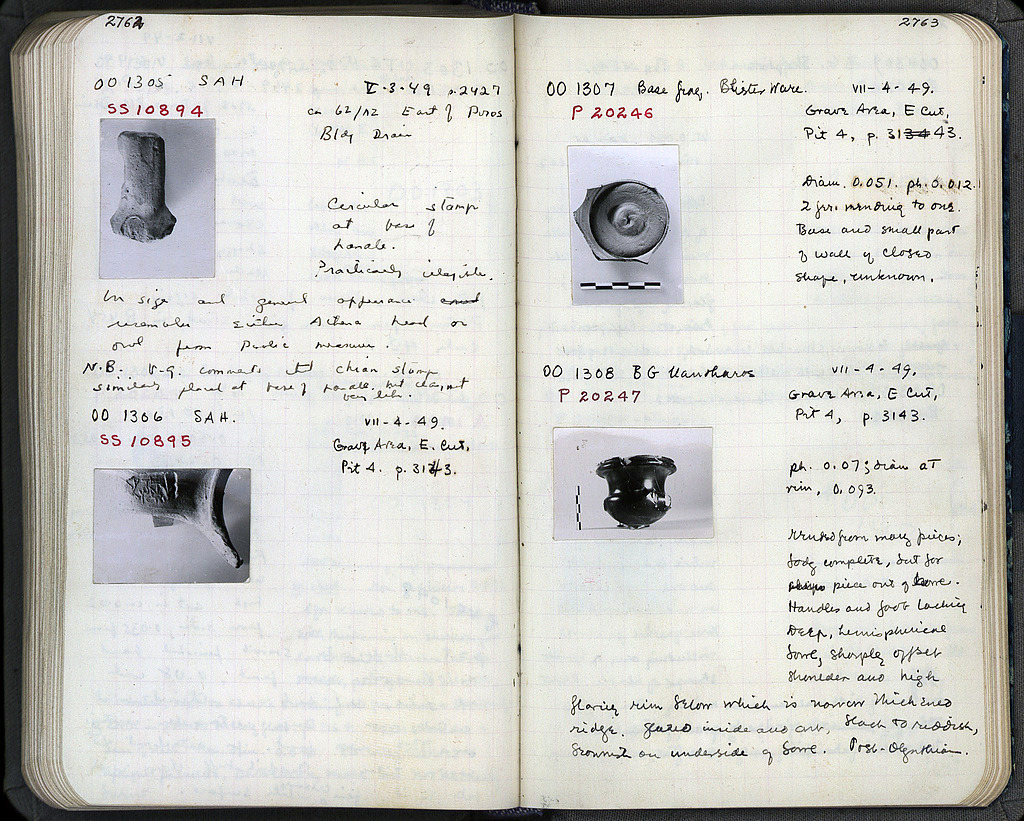 2762
OO 1305 SAH
V-3-49 p.2427
SS 10894
ca 62/ΠΖ East of Poros
Bldg Drain
Circular stamp
at base of
handle.
Practically illegible.
In size and general appearance
resembles either Athena head or
owl from Public measure.
N.B. V.G. connects Chian stamp
similarly placed at base of handle, but does not
OO 1306 SAH.
VII-4-49.
SS 10895
Grave Area, E. Cut,
Pit 4. p. 3143.
2763
OO 1307 Base frag. Blister Ware.
VII-4-49.
P 20246
Grave Area, E Cut,
Pit 4, p. 3134 43.
Diam. 0.051. ph. 0.012.
2 frr. mending to one.
Base and small part
of wall of closed
shape, unknown.
OO 1308 BG Kantharos
VII-4-49.
P 20247
Grave Area, E Cut,
Pit 4, p. 3143.
ph. 0.07; diam at
rim, 0.093.
Mended from many pieces;
body complete, but for
chips piece out of bowl.
Handles and foot lacking
Deep, hemispherical
bowl, sharply offset
shoulder and high
flaring rim below which is narrow thickened
ridge. Glazed inside and out, black to reddish,
brownish on underside of bowl. Post-Olynthian.